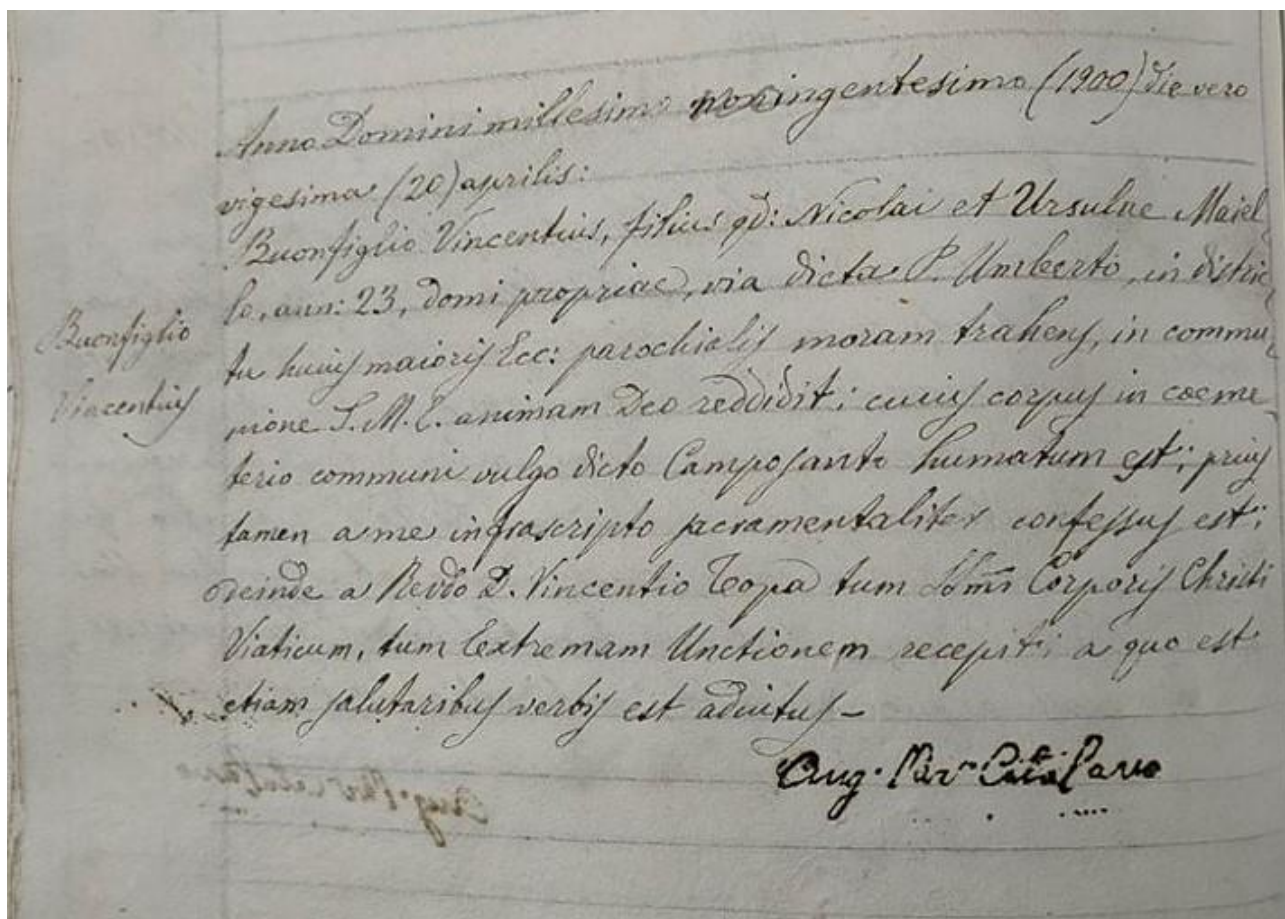 Anno Domini millesimo noningentesimo (1900) die vero
vigesima (20) aprilis:
Buonfiglio Vincentius, filius qd: Nicolai et Ursulae Maiel
Buonfiglio
Vincentius
lo, ann: 23, domi propriae, via dicta P. Umberto, in distric
tu huius maioris Ecc: parochialis moram trahens, in commu
nione S. M. E. animam Deo reddidit; cuius corpus in coeme
terio communi vulgo dicto Camposanto humatum est; prius
tamen a me infrascripto sacramentaliter confessus est;
deinde a Revdo D. Vincentio Topa tum Corporis Christi
Viaticum, tum Extremam Unctionem recepit; a quo est
etiam salutaribus verbis est adiutus –
Aug. Par